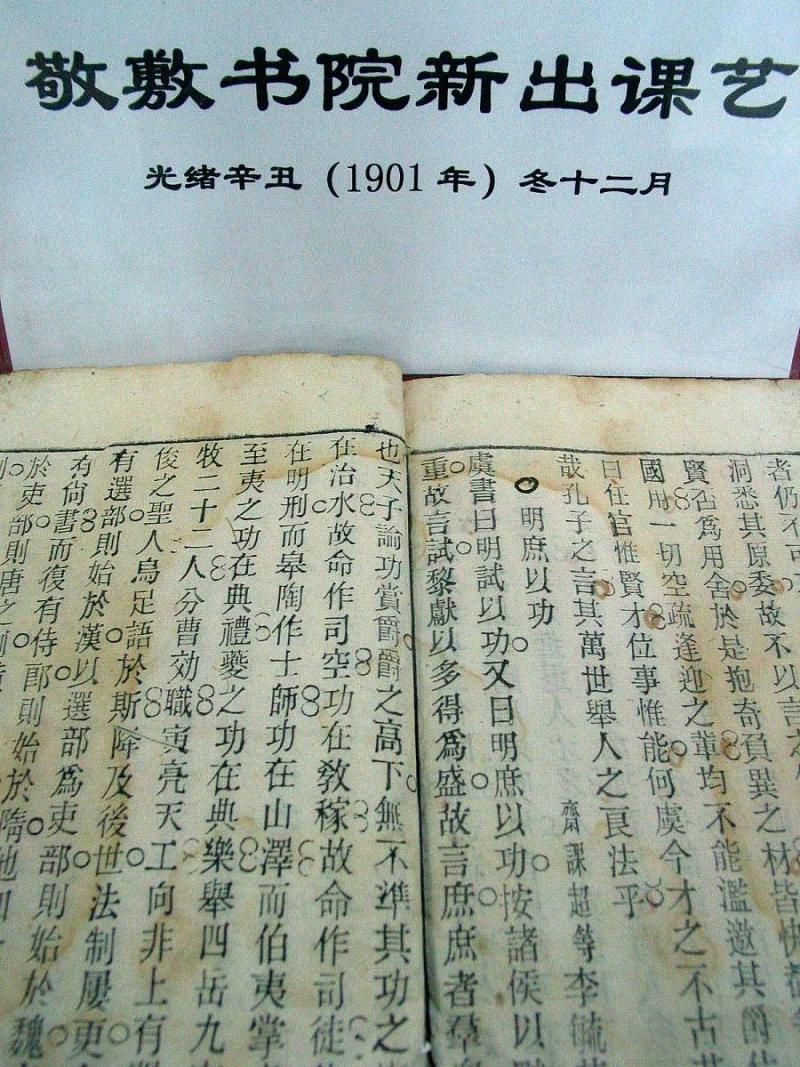 敬敷书院新出课艺
光绪辛丑（1901年）冬十二月
者仍不可
洞悉其原委故不以言之
賢否爲用舍於是抱奇負異之材皆快
國用一切空疏逢迎之輩均不能濫邀其爵
曰任官惟賢才位事惟能何虞今才之不古
哉孔子之言其萬世舉人之良法乎
齋課超等李毓
明庶以功
虞書曰明試以功又曰明庶以功按諸侯以
重故言試黎獻以多得爲盛故言庶庶者羣
也天子論功賞爵爵之高下無不準其功之
在治水故命作司空功在教稼故命作司徒
在明刑而皋陶作士師功在山澤而伯夷掌
至夷之功在典禮夔之功在典樂舉四岳九
牧二十二人分曹効職寅亮天工向非上有
俊之聖人烏足語於斯降及後世法制屢更
有選部則始於漢以選部爲吏部則始於魏
有尚書而復有侍郎則始於隋
於吏部則唐之